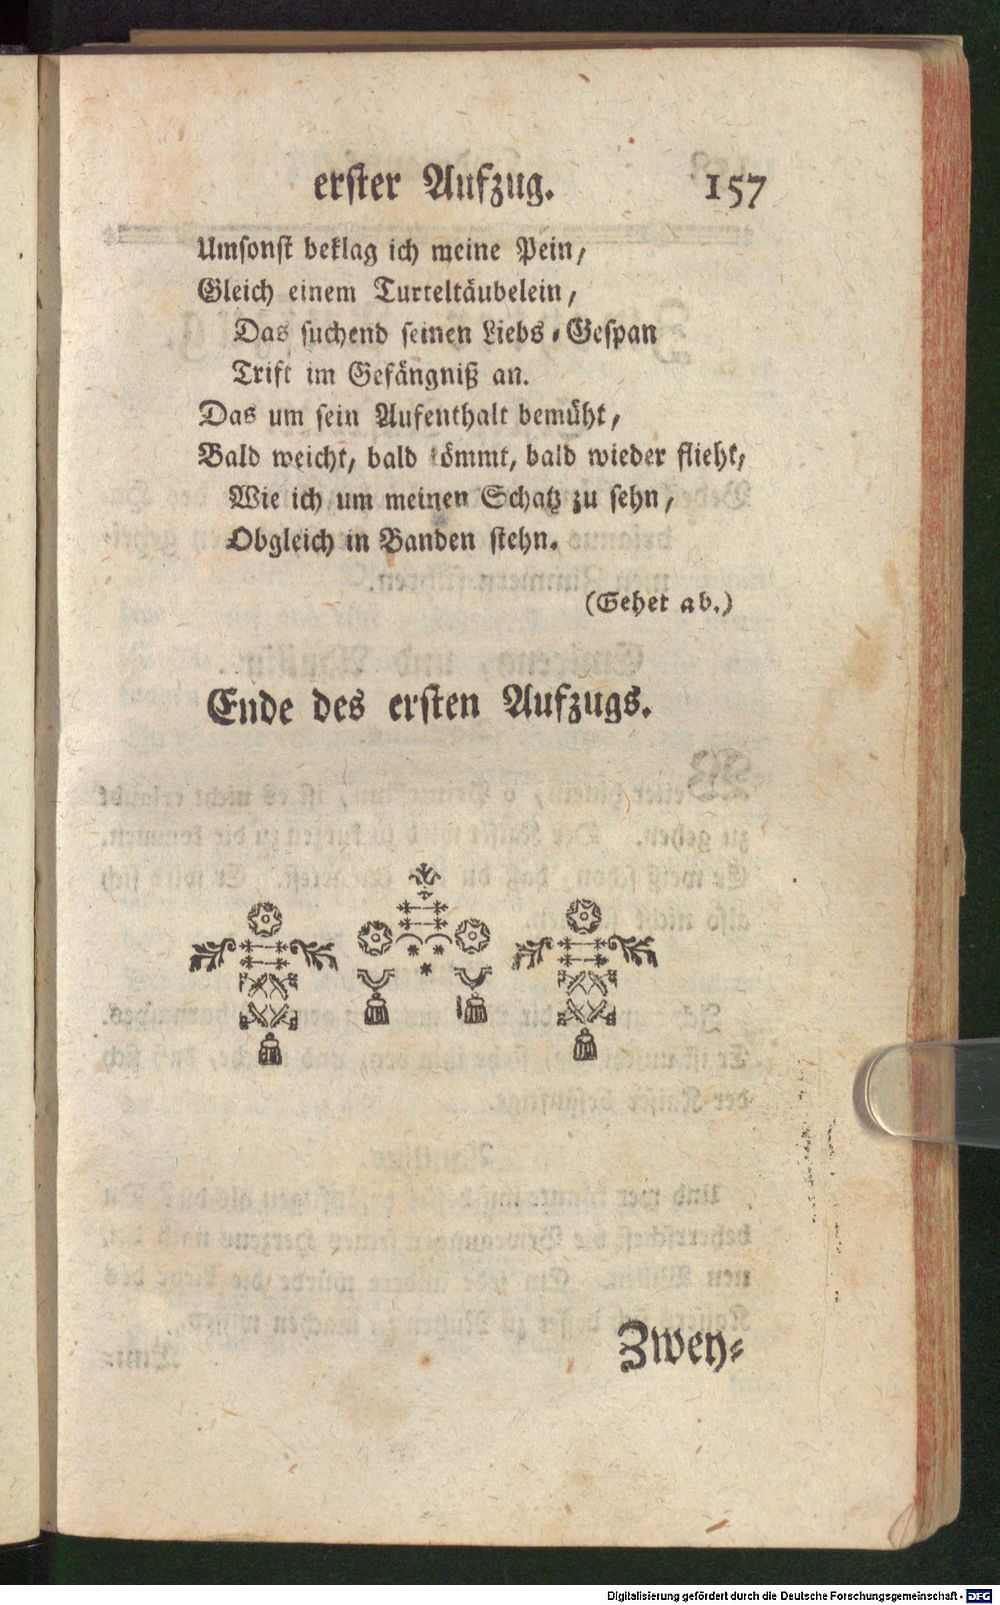 erster Aufzug. 157
Umsonst beklag ich meine Pein,
Gleich einem Turteltäubelein,
Das suchend seinen Liebs-Gespan
Trift im Gefängniß an.
Das um sein Aufenthalt bemüht,
Bald weicht, bald kömmt, bald wieder flieht,
Wie ich um meinen Schatz zu sehn,
Obgleich in Banden stehn.
(Gehet ab.)
Ende des ersten Aufzugs.
Zwey-
Digitalisierung gefördert durch die Deutsche Forschungsgemeinschaft - DFG